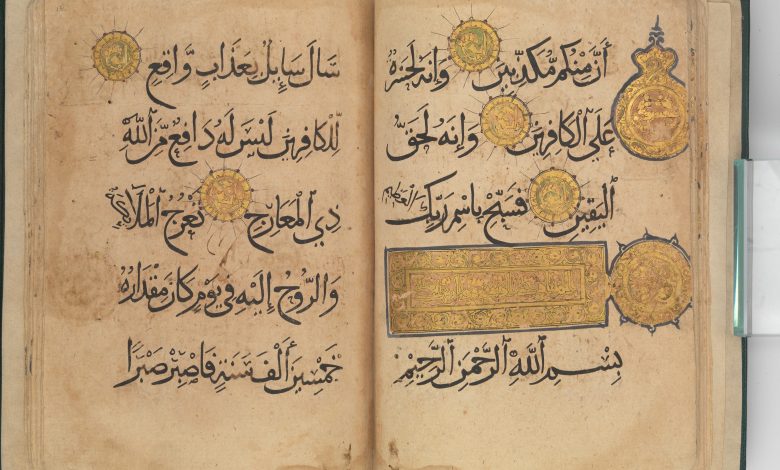 أَنَّ مِنكُم مُّكَذِّبِينَ وَإِنَّهُ لَحَسْرَةٌ
عَلَى الْكَافِرِينَ وَإِنَّهُ لَحَقُّ
الْيَقِينِ فَسَبِّحْ بِاسْمِ رَبِّكَ الْعَظِيمِ
بِسْمِ اللَّهِ الرَّحْمَنِ الرَّحِيمِ
سَالَ سَايِلٌ بِعَذَابٍ وَّاقِعٍ
لِّلْكَافِرِينَ لَيْسَ لَهُ دَافِعٌ مِّنَ اللَّهِ
ذِي الْمَعَارِجِ تَعْرُجُ الْمَلَائِكَةُ
وَالرُّوحُ إِلَيْهِ فِي يَوْمٍ كَانَ مِقْدَارُهُ
خَمْسِينَ أَلْفَ سَنَةٍ فَاصْبِرْ صَبْرًا